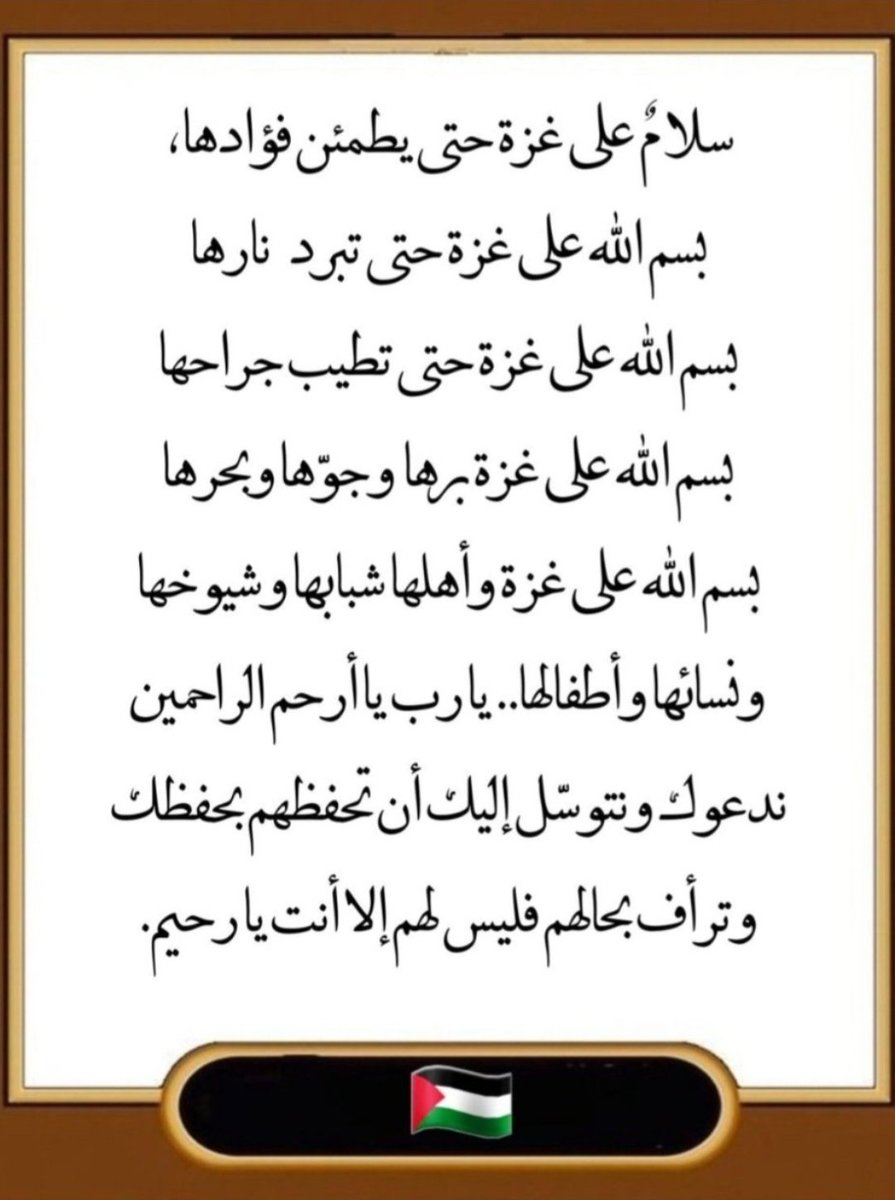 سلامٌ على غزة حتى يطمئن فؤادها،
بسم الله على غزة حتى تبرد نارها
بسم الله على غزة حتى تطيب جراحها
بسم الله على غزة برها وجوّها وبحرها
بسم الله على غزة وأهلها شبابها وشيوخها
ونسائها وأطفالها.. يارب يا أرحم الراحمين
ندعوك ونتوسّل إليك أن تحفظهم بحفظك
وترأف بحالهم فليس لهم إلا أنت يا رحيم.